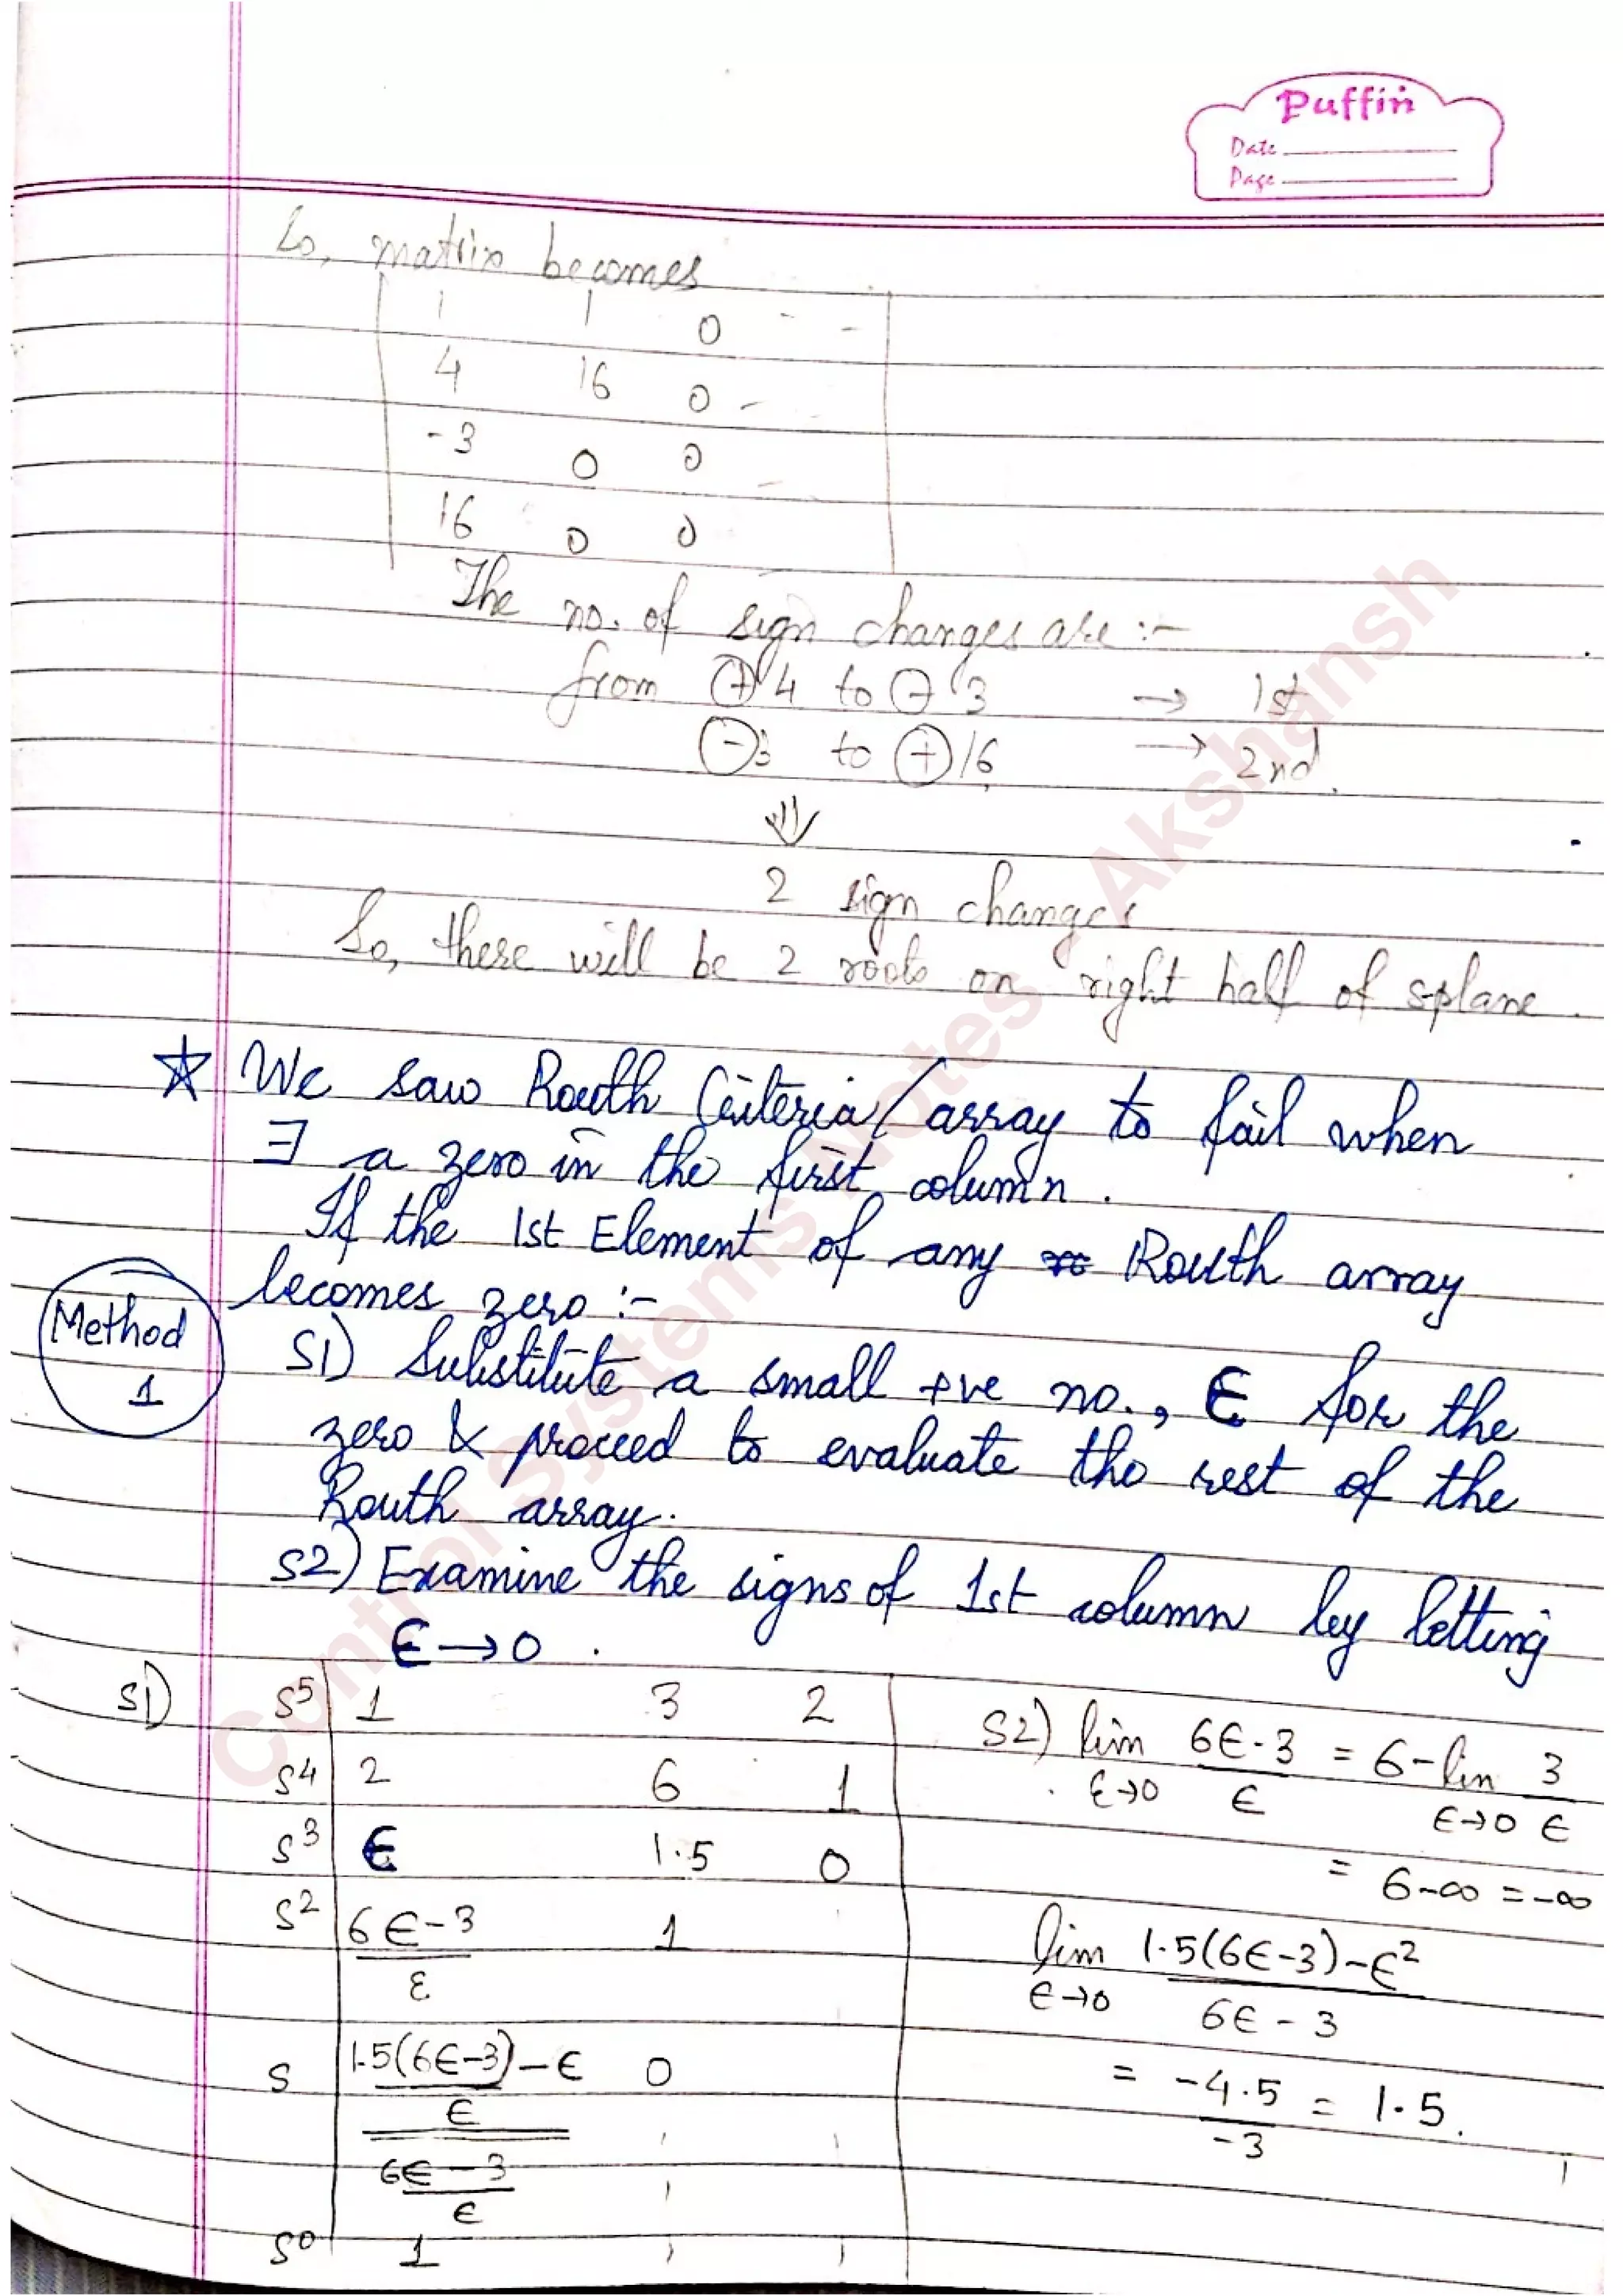 Puffin
Date
Page
So, matrix becomes
1 1 0 - -
4 16 0 -
-3 0 0
16 0 0
The no. of sign changes are :-
from ⊕ 4 to ⊖ 3 → 1st
⊖3 to ⊕16 → 2nd
⇓
2 sign changes
So, there will be 2 roots on right half of splane.
☆ We saw Routh Criteria/array to fail when
∃ a zero in the first column.
If the 1st Element of any Routh array
becomes zero :-
Method
1
S1) Substitute a small +ve no., ϵ for the
zero & proceed to evaluate the rest of the
Routh array.
S2) Examine the signs of 1st column by letting
ϵ → 0 .
S1) S⁵ 1 3 2
S⁴ 2 6 1
S³ ϵ 1.5 0
S² (6ϵ-3)/ε 1
S (1.5(6ϵ-3)-ϵ)/ϵ 0
(6ϵ-3)/ϵ
S⁰ 1
S2) lim ε→0 (6ϵ-3)/ϵ = 6 - lim ϵ→0 3/ϵ
= 6-∞ = -∞
lim ϵ→0 (1.5(6ϵ-3)-ϵ²)/(6ϵ-3)
= -4.5/-3 = 1.5.
Control Systems Notes - Akshansh